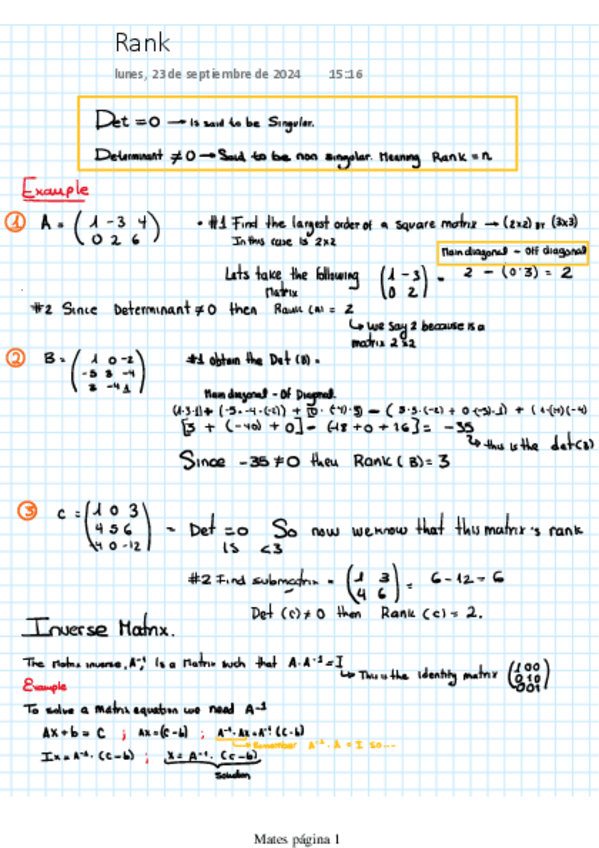 Rank
lunes, 23 de septiembre de 2024 15:16
Det = 0 → Is said to be Singular.
Determinant ≠ 0 → Said to be non singular. Meaning Rank = n
Example
① A = ( 1 -3 4 ) • #1 Find the largest order of a square matrix → (2x2) or (3x3)
( 0 2 6 ) In this case is 2x2
Main diagonal - Off diagonal
Lets take the following ( 1 -3 ) = 2 - (0·3) = 2
Matrix ( 0 2 )
#2 Since Determinant ≠ 0 then Rank (A) = 2
↳ we say 2 because is a
matrix 2x2
② B = ( 1 0 -2 ) #1 obtain the Det (B) =
( -5 3 -4 )
Main diagonal - Of Diagonal.
(1·3·1) + (-5·-4·(-2)) + (0·(-4)·3) - (3·3·(-2) + 0·(-5)·1) + (1·(-4)(-4)
[3 + (-40) + 0] - (-18 + 0 + 16] = -35
↳ this is the det(B)
Since -35 ≠ 0 then Rank (B) = 3
③ C = ( 1 0 3 )
( 4 5 6 ) = Det = 0 So now we know that this matrix's rank
( -4 0 -12 ) is <3
#2 Find submatrix = ( 1 3 ) = 6 - 12 = 6
( 4 6 )
Det (c) ≠ 0 then Rank (c) = 2.
Inverse Matrix.
The matrix inverse, A⁻¹, Is a Matrix such that A·A⁻¹ = I
↳ This is the identity matrix ( 1 0 0 )
( 0 1 0 )
( 0 0 1 )
Example
To solve a matrix equation we need A⁻¹
Ax + b = c ; Ax = (c-b) ; A⁻¹·Ax = A⁻¹ (c-b)
↳ Remember A⁻¹·A = I so...
Ix = A⁻¹·(c-b) ; x = A⁻¹·(c-b)
Solution
Mates página 1